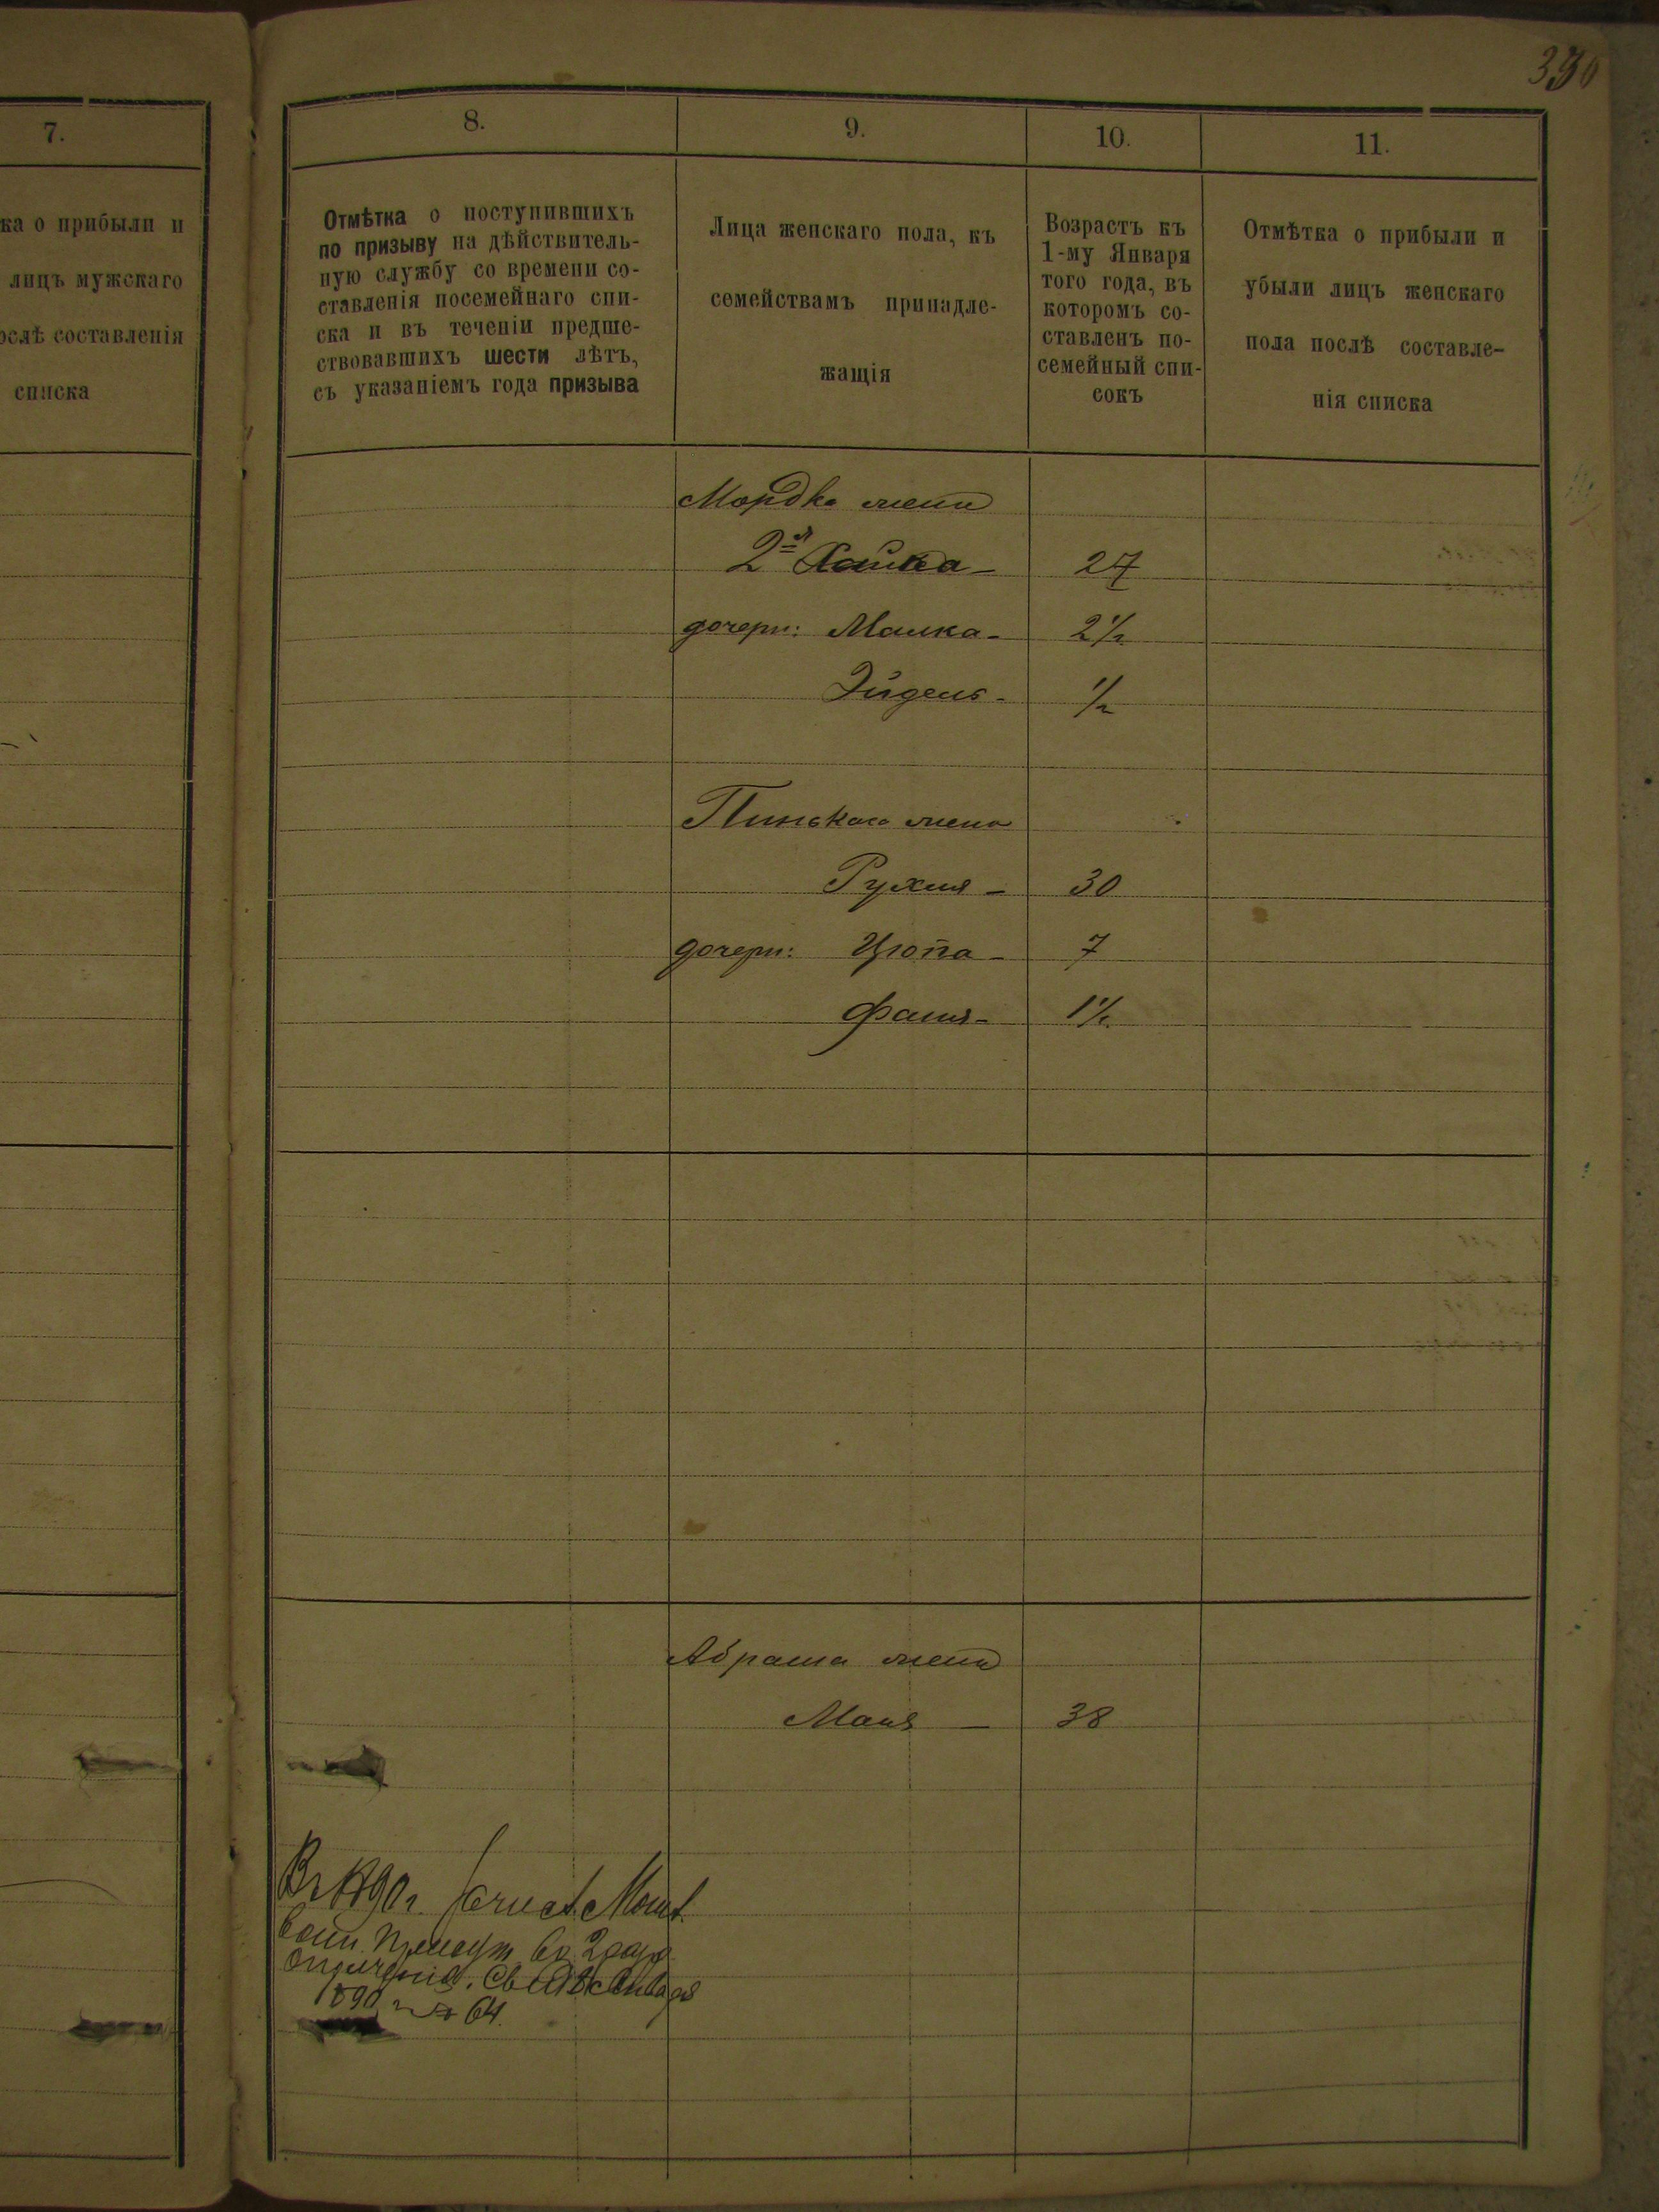 7.
ка о прибыли и
лицъ мужскаго
ослѣ составленія
списка
8.
Отмѣтка о поступившихъ
по призыву на дѣйствитель-
ную службу со времени со-
ставленія посемейнаго спи-
ска и въ теченіи предше-
ствовавшихъ шести лѣтъ,
съ указаніемъ года призыва
9.
Лица женскаго пола, къ
семействамъ принадле-
жащія
10.
Возрастъ къ
1-му Января
того года, въ
которомъ со-
ставленъ по-
семейный спи-
сокъ
11.
Отмѣтка о прибыли и
убыли лицъ женскаго
пола послѣ составле-
нія списка
Мордка жена
2я Хайка - 27
дочери: Малка - 2 1/2
Эйдель - 1/2
Пинькаса жена
Рухля - 30
дочери: Цюпа - 7
Фаня - 1 1/2
Абрама жена
Маня - 38
Въ 1890 г.
1890 г № 64.